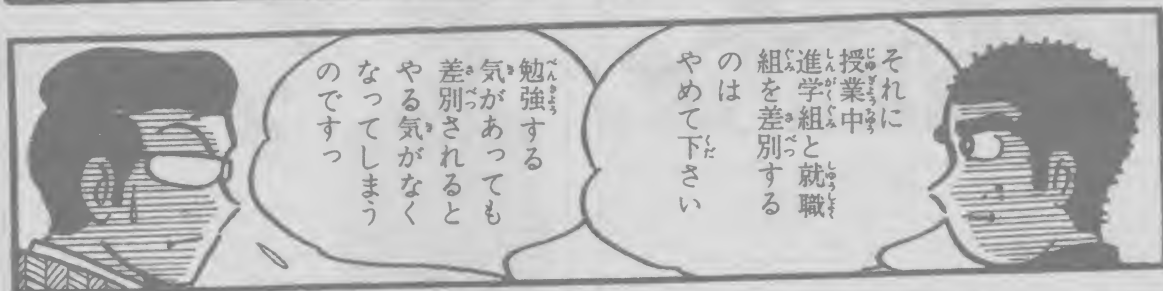 それに
授業中
進学組と就職
組を差別する
のは
やめて下さい
勉強する
気があっても
差別されると
やる気がなく
なってしまう
のですっ